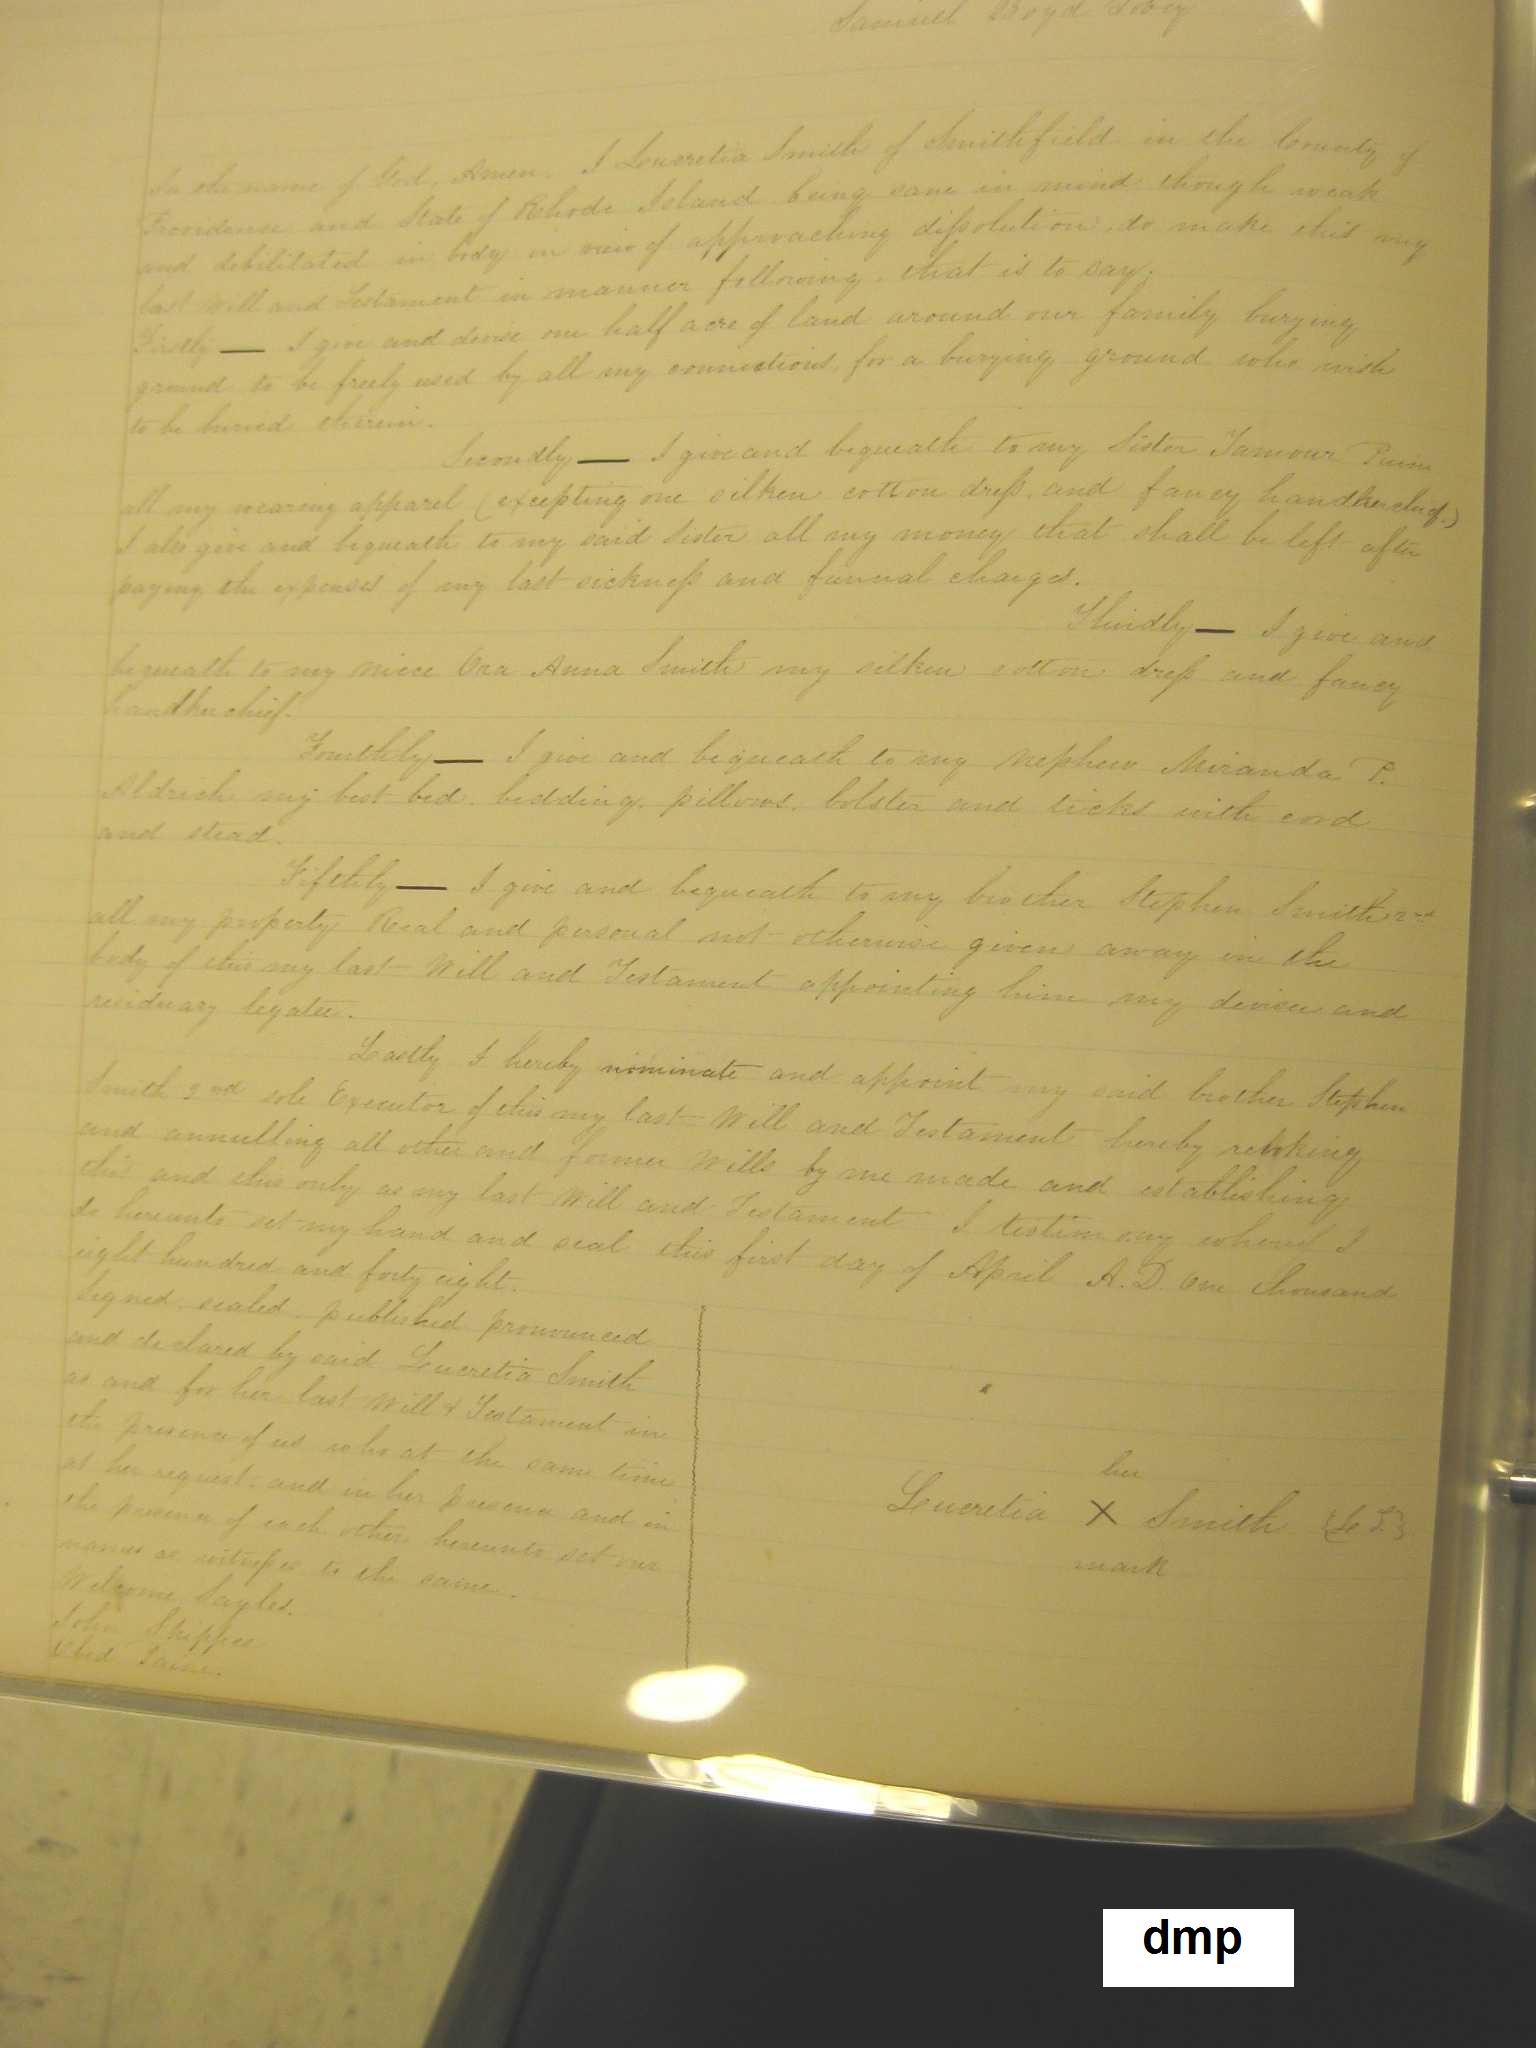 Samuel Boyd Tobey
In the name of God, Amen. I Lucretia Smith of Smithfield in the County of
Providence and State of Rhode Island being sane in mind though weak
and debilitated in body in view of approaching dissolution, do make this my
last Will and Testament in manner following, that is to say;
Firstly — I give and devise one half acre of land around our family burying
ground to be freely used by all my connections, for a burying ground who wish
to be buried therein.
Secondly — I give and bequeath to my Sister Tamour
all my wearing apparel (excepting one silken cotton dress, and fancy handkerchief.)
I also give and bequeath to my said Sister all my money that shall be left after
paying the expenses of my last sickness and funeral charges.
Thirdly — I give and
bequeath to my niece Ora Anna Smith my silken cotton dress and fancy
handkerchief.
Fourthly — I give and bequeath to my Nephew Miranda P.
Aldrich my best bed, bedding, pillows, bolster and ticks with cord
and stead.
Fifthly — I give and bequeath to my brother Stephen Smith 2nd
all my property Real and personal not otherwise given away in the
body of this my last Will and Testament appointing him my devisee and
residuary legatee.
Lastly I hereby nominate and appoint my said brother Stephen
Smith 2nd sole Executor of this my last Will and Testament hereby revoking
and annulling all other and former Wills by me made and establishing
this and this only as my last Will and Testament I testimony whereof I
do hereunto set my hand and seal this first day of April A.D. One thousand
eight hundred and forty eight.
Signed, sealed, published pronounced
and declared by said Lucretia Smith
as and for her last Will & Testament in
the presence of us who at the same time
at her request, and in her presence and in
the presence of each other hereunto set our
names as witnesses to the same.
Welcome Sayles.
John Skippee
Obed Paine.
her
Lucretia X Smith {L S.}
mark
dmp